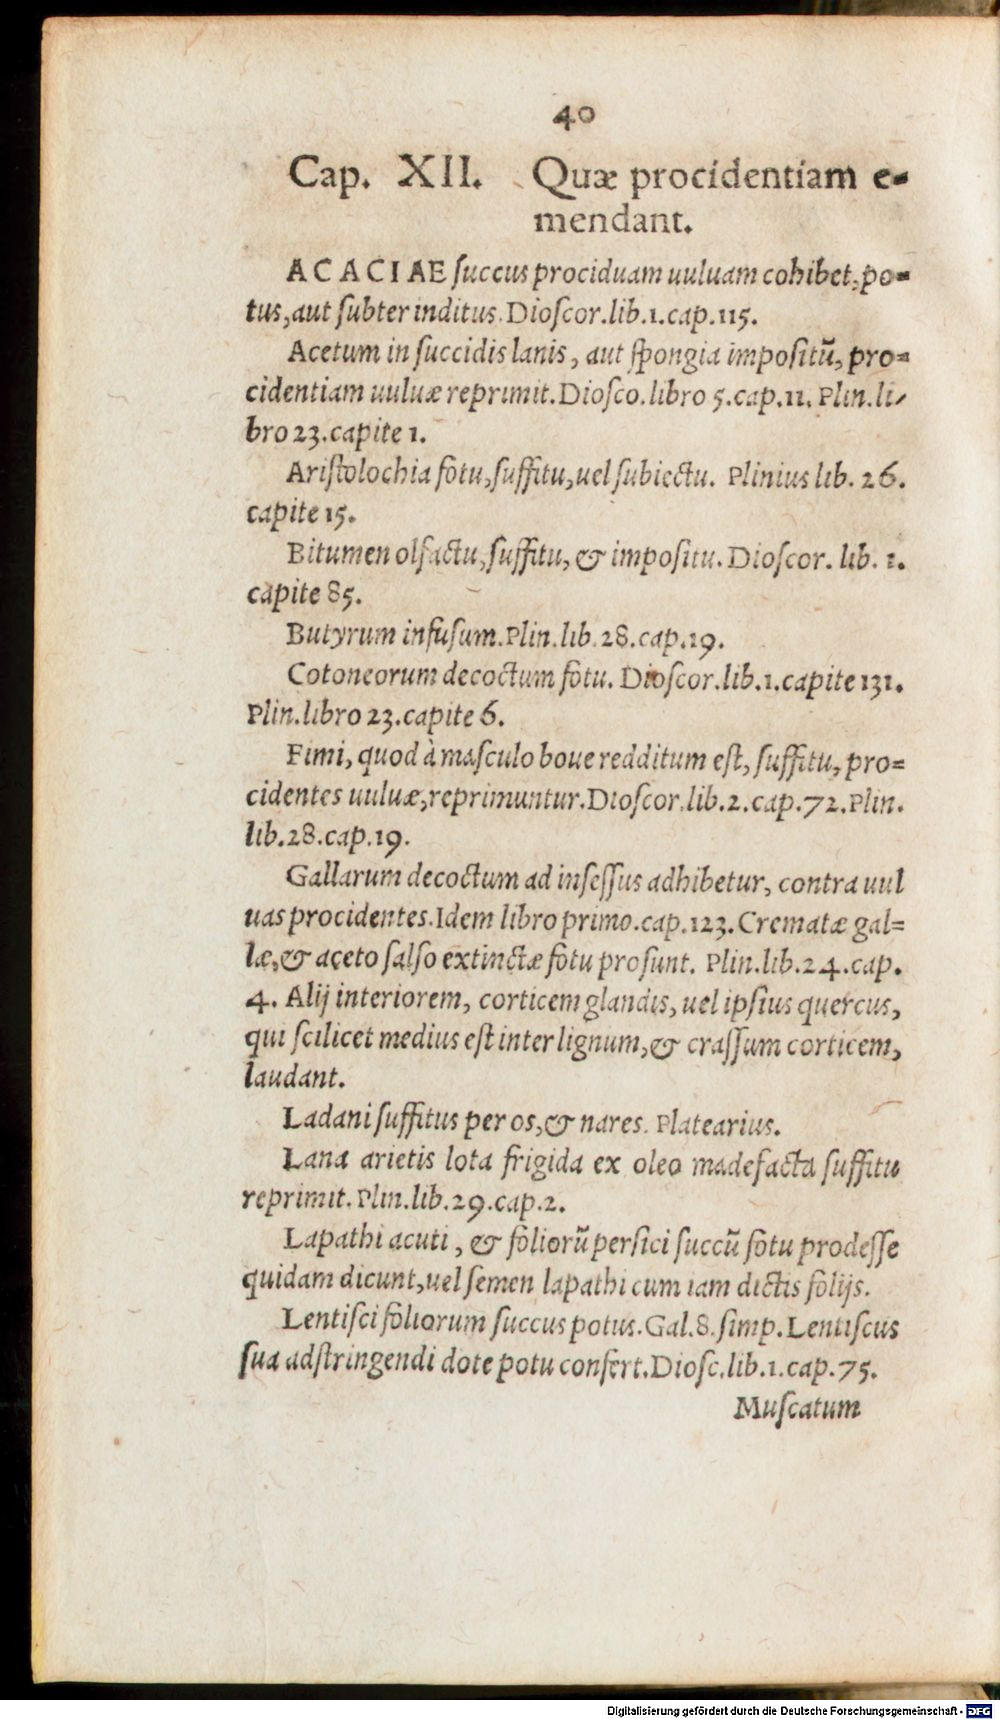 40
Cap. XII. Quæ procidentiam e-
mendant.
ACACIAE ſuccus prociduam uuluam cohibet, po-
tus, aut ſubter inditus. Dioſcor. lib. 1. cap. 115.
Acetum in ſuccidis lanis, aut ſpongia impoſitũ, pro-
cidentiam uuluæ reprimit. Dioſco. libro 5. cap. 11. Plin. li-
bro 23. capite 1.
Ariſtolochia fotu, ſuffitu, uel ſubiectu. Plinius lib. 26.
capite 15.
Bitumen olfactu, ſuffitu, & impoſitu. Dioſcor. lib. 1.
capite 85.
Butyrum infuſum. Plin. lib. 28. cap. 19.
Cotoneorum decoctum fotu. Dioſcor. lib. 1. capite 131.
Plin. libro 23. capite 6.
Fimi, quod à maſculo boue redditum eſt, ſuffitu, pro-
cidentes uuluæ, reprimuntur. Dioſcor. lib. 2. cap. 72. Plin.
lib. 28. cap. 19.
Gallarum decoctum ad inſeſſus adhibetur, contra uul
uas procidentes. Idem libro primo. cap. 123. Crematæ gal-
læ, & aceto ſalſo extinctæ fotu proſunt. Plin. lib. 24. cap.
4. Alij interiorem, corticem glandis, uel ipſius quercus,
qui ſcilicet medius eſt inter lignum, & craſſum corticem,
laudant.
Ladani ſuffitus per os, & nares. Platearius.
Lana arietis lota frigida ex oleo madefacta ſuffitu
reprimit. Plin. lib. 29. cap. 2.
Lapathi acuti, & foliorũ perſici ſuccũ fotu prodeſſe
quidam dicunt, uel ſemen lapathi cum iam dictis folijs.
Lentiſci foliorum ſuccus potus. Gal. 8. ſimp. Lentiſcus
ſua adſtringendi dote potu confert. Dioſc. lib. 1. cap. 75.
Muſcatum
Digitalisierung gefördert durch die Deutsche Forschungsgemeinschaft - DFG